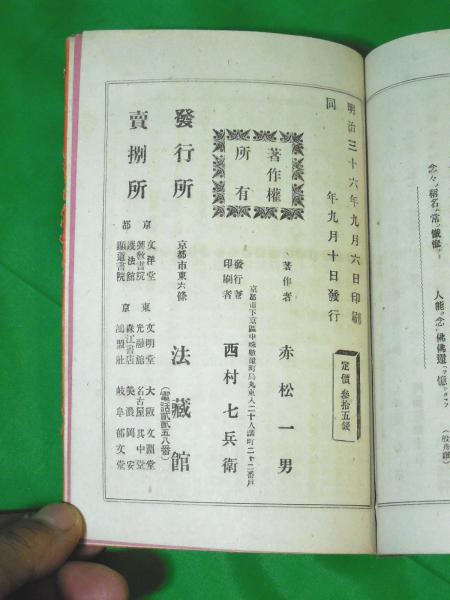 念々稱名常懺悔
人能念佛佛還憶
明治三十六年九月六日印刷
同 年九月十日發行
定價 參拾五錢
著作權
所有
著作者 赤松一男
發行者
印刷者
西村七兵衛
發行所
京都市東六條
法藏館
(電話貳貳五八番)
賣捌所
京都
文洋堂
興教書院
護法館
顯道書院
東京
文明堂
光融館
森江書店
鴻盟社
大阪
文淵堂
名古屋
其中堂
美濃岡安
岐阜郁文堂